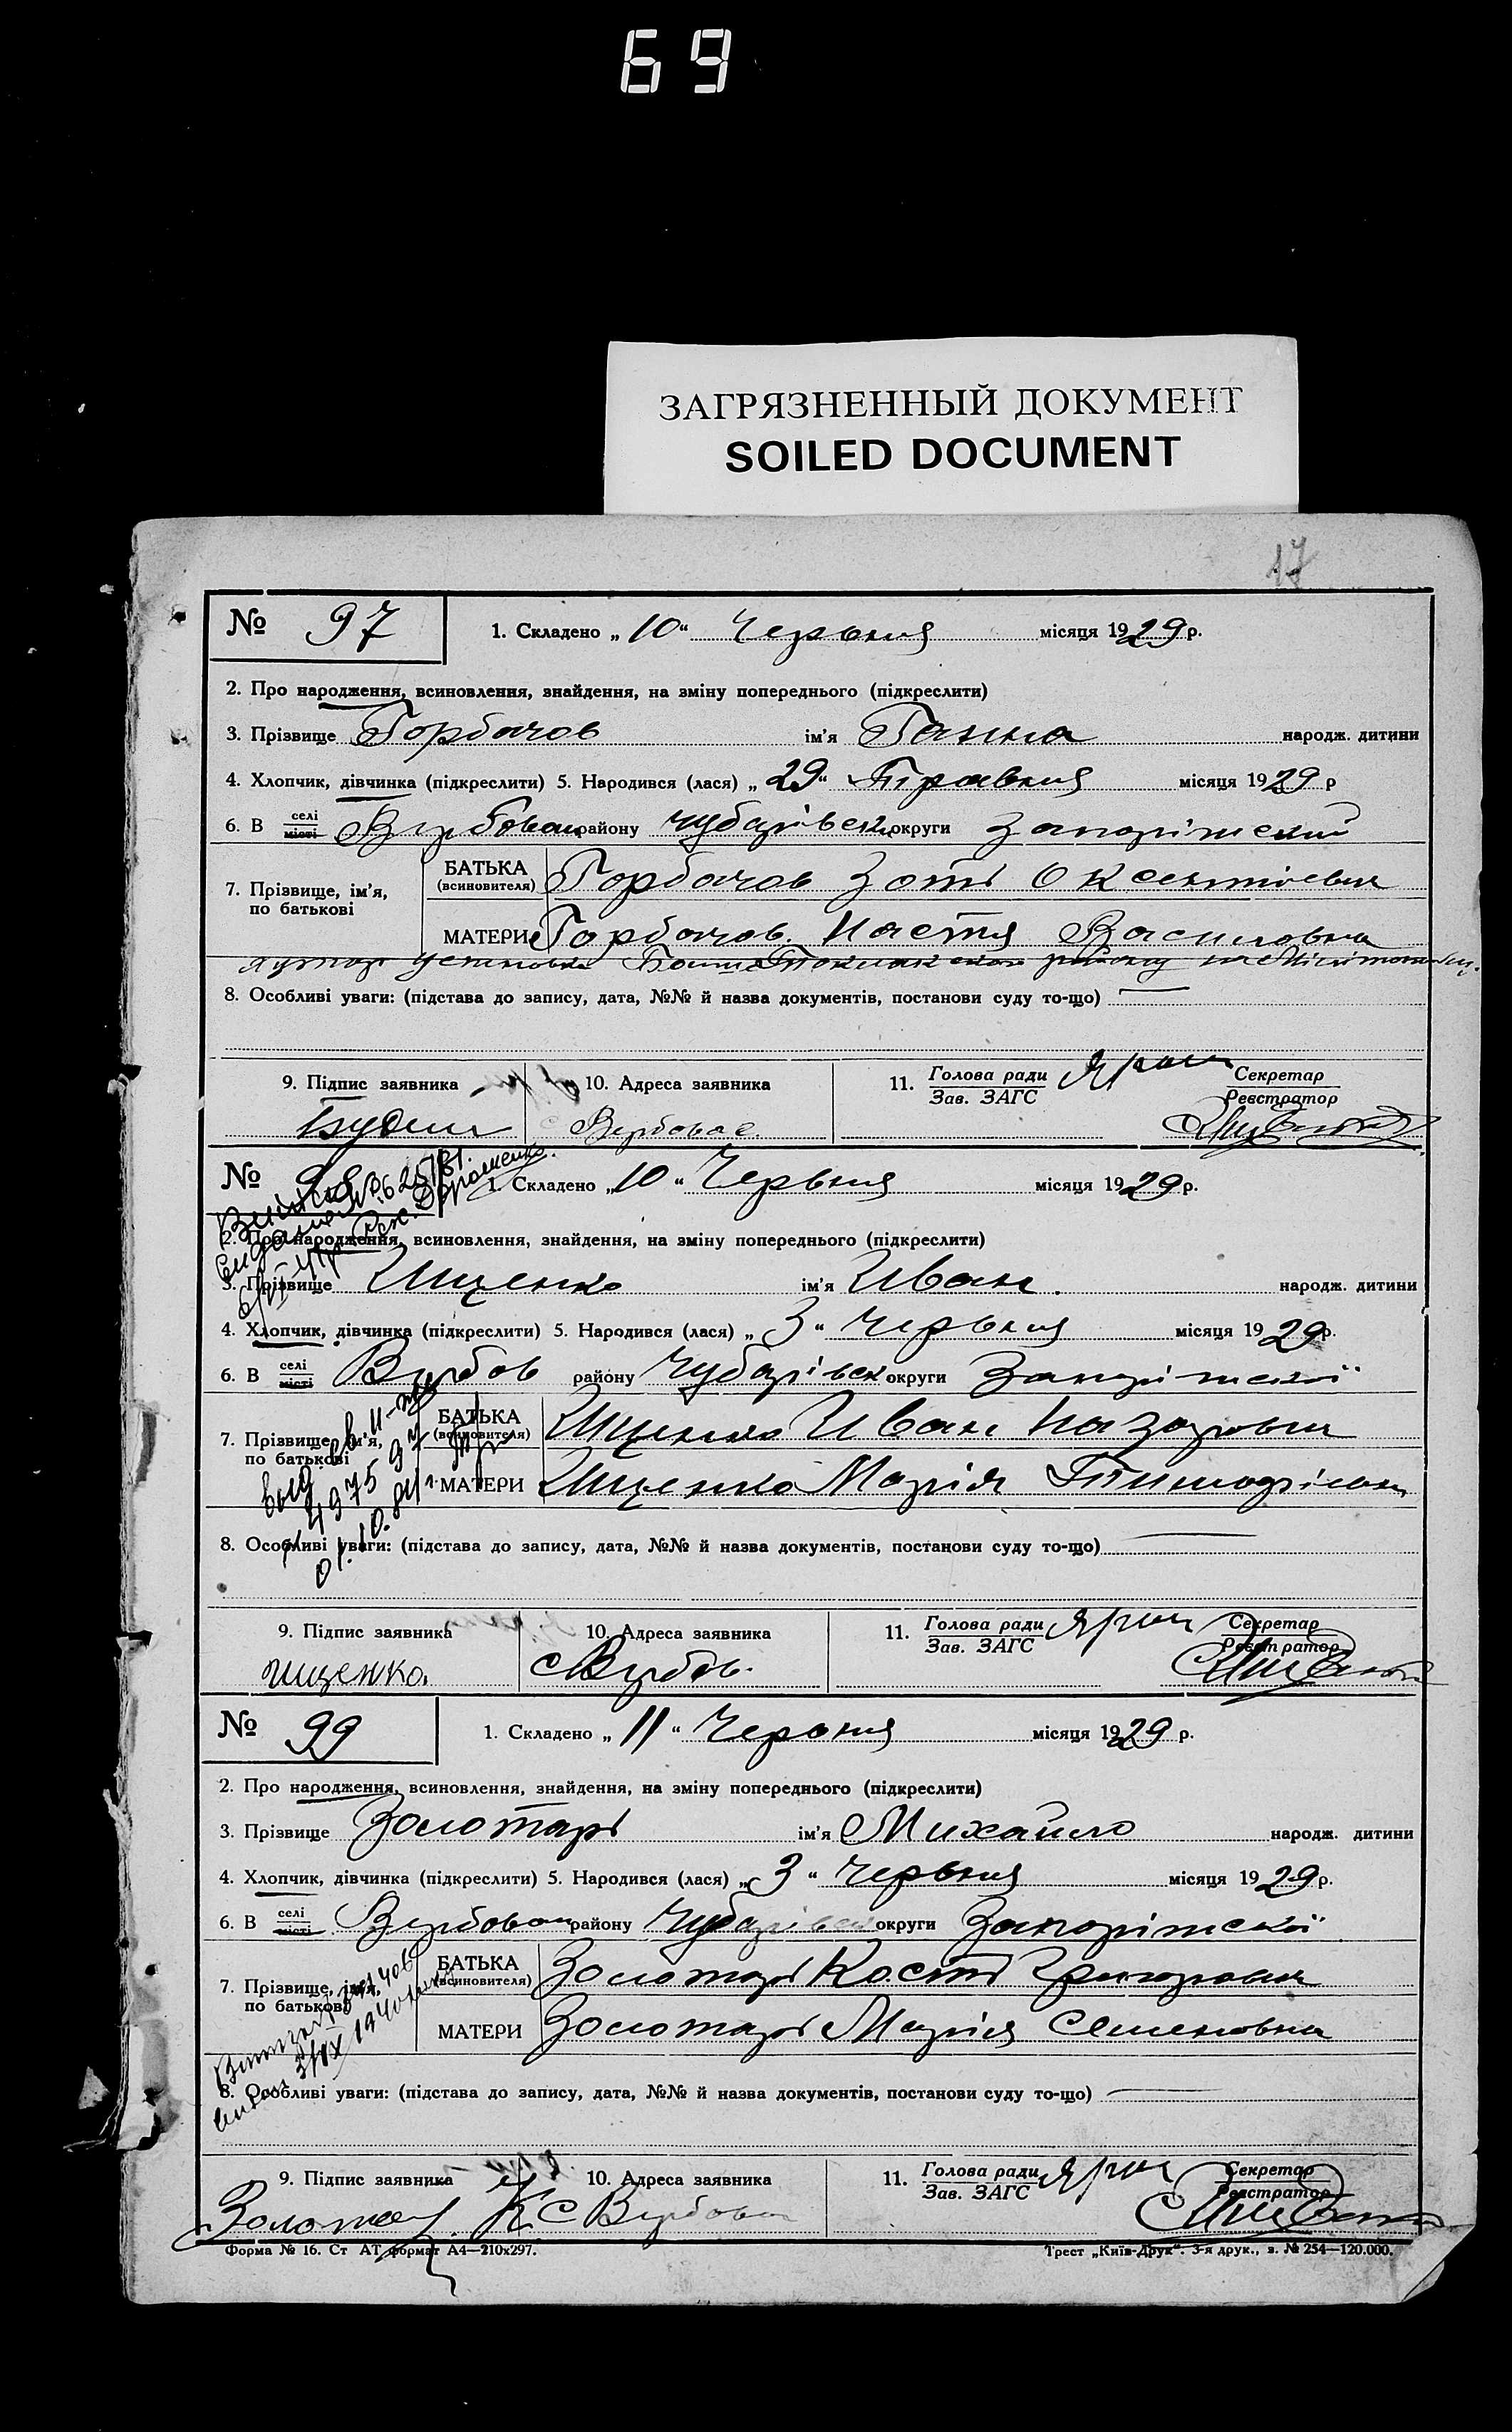 69
ЗАГРЯЗНЕННЫЙ ДОКУМЕНТ
SOILED DOCUMENT
17
№ 97 1. Складено „10“ Червня місяця 1929 р.
2. Про народження, всиновлення, знайдення, на зміну попереднього (підкреслити)
3. Прізвище Горбачов ім'я Ганна народж. дитини
4. Хлопчик, дівчинка (підкреслити) 5. Народився (лася) „29“ Травня місяця 1929 р
6. В селі місті Вербован району Чубарівськ округи Запоріжский
7. Прізвище, ім'я, по батькові
БАТЬКА (всиновителя) Горбачов Зоті Оксентіевич
МАТЕРИ Горбачов Настя Василовна
хутор Успеновка району
8. Особливі уваги: (підстава до запису, дата, №№ й назва документів, постанови суду то-що) —
9. Підпис заявника 10. Адреса заявника 11. Голова ради Зав. ЗАГС Секретар Реєстратор
Вербова с.
№ 98 1. Складено „10“ Червня місяця 1929 р.
2. Про народження, всиновлення, знайдення, на зміну попереднього (підкреслити)
3. Прізвище Ищенко ім'я Иван. народж. дитини
4. Хлопчик, дівчинка (підкреслити) 5. Народився (лася) „3“ Червня місяця 1929 р.
6. В селі місті Вербов району Чубарівськ округи Запоріжскої
7. Прізвище, ім'я, по батькові
БАТЬКА (всиновителя) Ищенко Иван Назарович
МАТЕРИ Ищенко Марія
8. Особливі уваги: (підстава до запису, дата, №№ й назва документів, постанови суду то-що) —
9. Підпис заявника 10. Адреса заявника 11. Голова ради Зав. ЗАГС Секретар Реєстратор
ищенко. с Вербов.
№ 99 1. Складено „11“ Червня місяця 1929 р.
2. Про народження, всиновлення, знайдення, на зміну попереднього (підкреслити)
3. Прізвище Золотарь ім'я Михайло народж. дитини
4. Хлопчик, дівчинка (підкреслити) 5. Народився (лася) „3“ Червня місяця 1929 р.
6. В селі місті Вербован району Чубарівськ округи Запоріжскої
7. Прізвище, ім'я, по батькові
БАТЬКА (всиновителя) Золотарь Кость Григорович
МАТЕРИ Золотарь Марія Семеновна
8. Особливі уваги: (підстава до запису, дата, №№ й назва документів, постанови суду то-що) —
9. Підпис заявника 10. Адреса заявника 11. Голова ради Зав. ЗАГС Секретар Реєстратор
К. с Вербова
Форма № 16. Ст АТ формат А4—210x297. Трест „Київ-Друк“. 3-я друк., з. № 254—120.000.